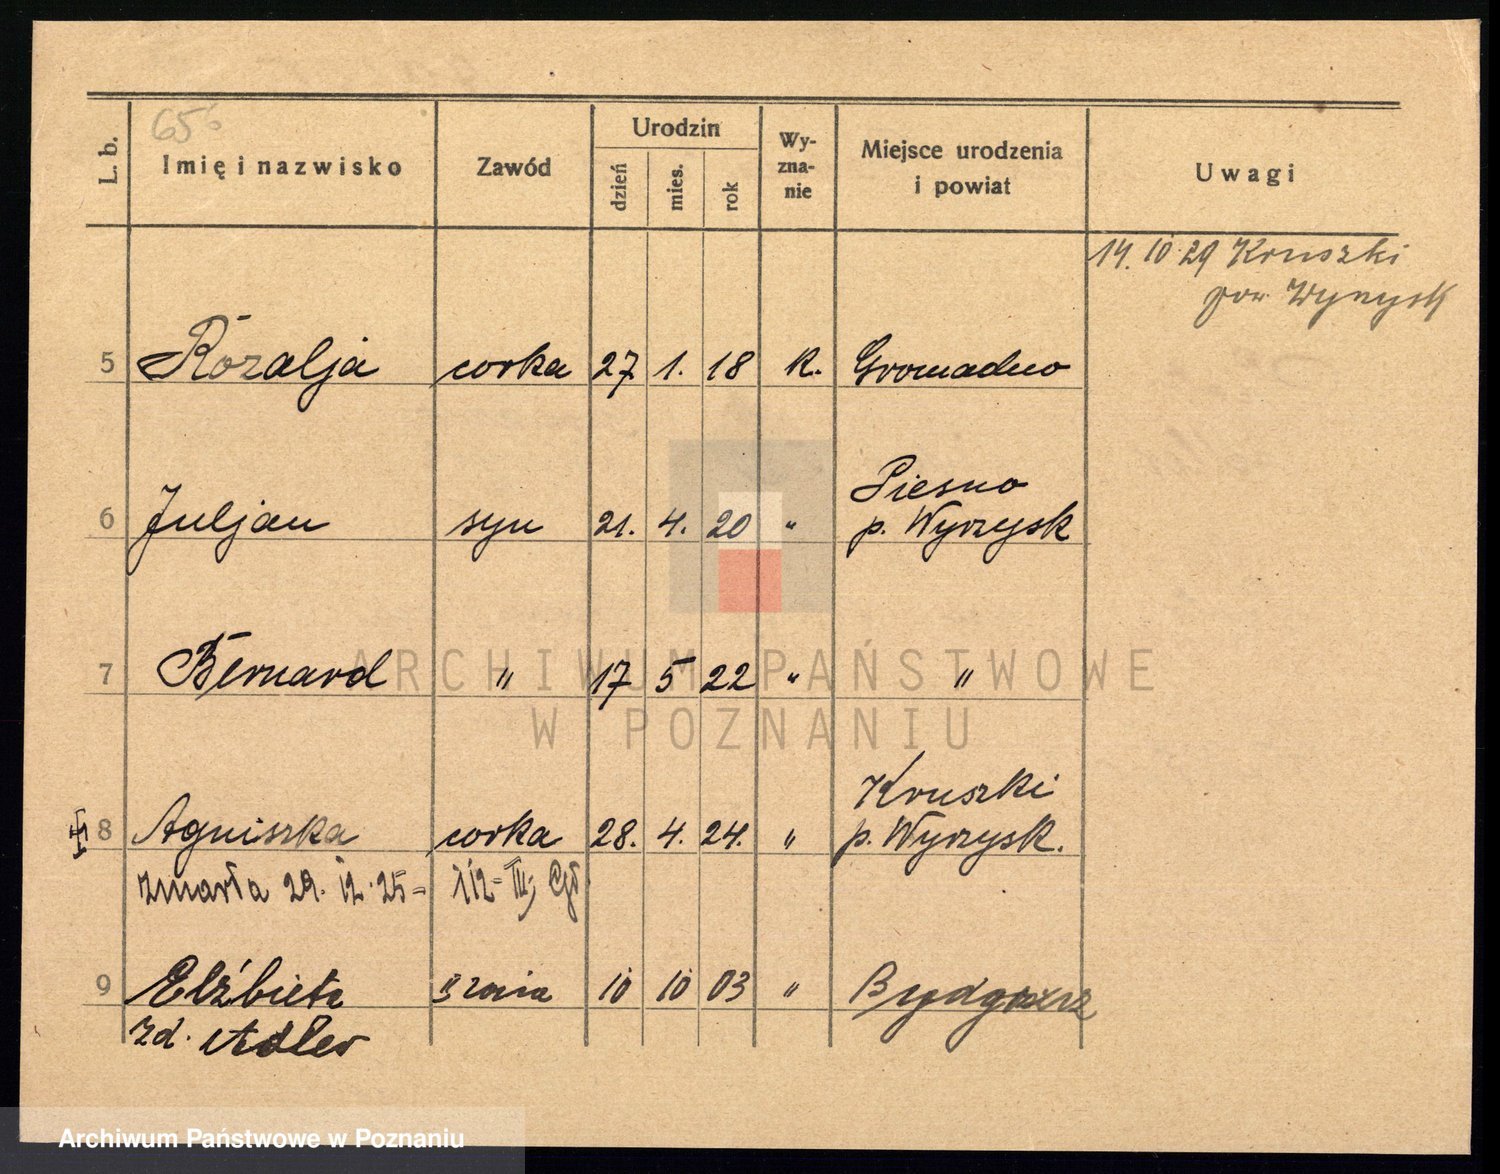 656
L. b.
Imię i nazwisko
Zawód
Urodzin
dzień mies. rok
Wy-
zna-
nie
Miejsce urodzenia
i powiat
Uwagi
14. 10. 29 Kruszki
pow. Wyrzysk
5 Rozalja corka 27 1. 18 R. Gromadno
Piesno
6 Juljan syn 21. 4. 20 " p. Wyrzysk
7 Bernard " 17 5 22 " "
Kruszki
8 Agniszka corka 28. 4. 24. " p. Wyrzysk.
zmarła 29. 12. 25 = 112 - III,
9 Elżbieta żona 10 10 03 " Bydgoszcz
zd. Adler
ARCHIWUM PAŃSTWOWE
W POZNANIU
Archiwum Państwowe w Poznaniu